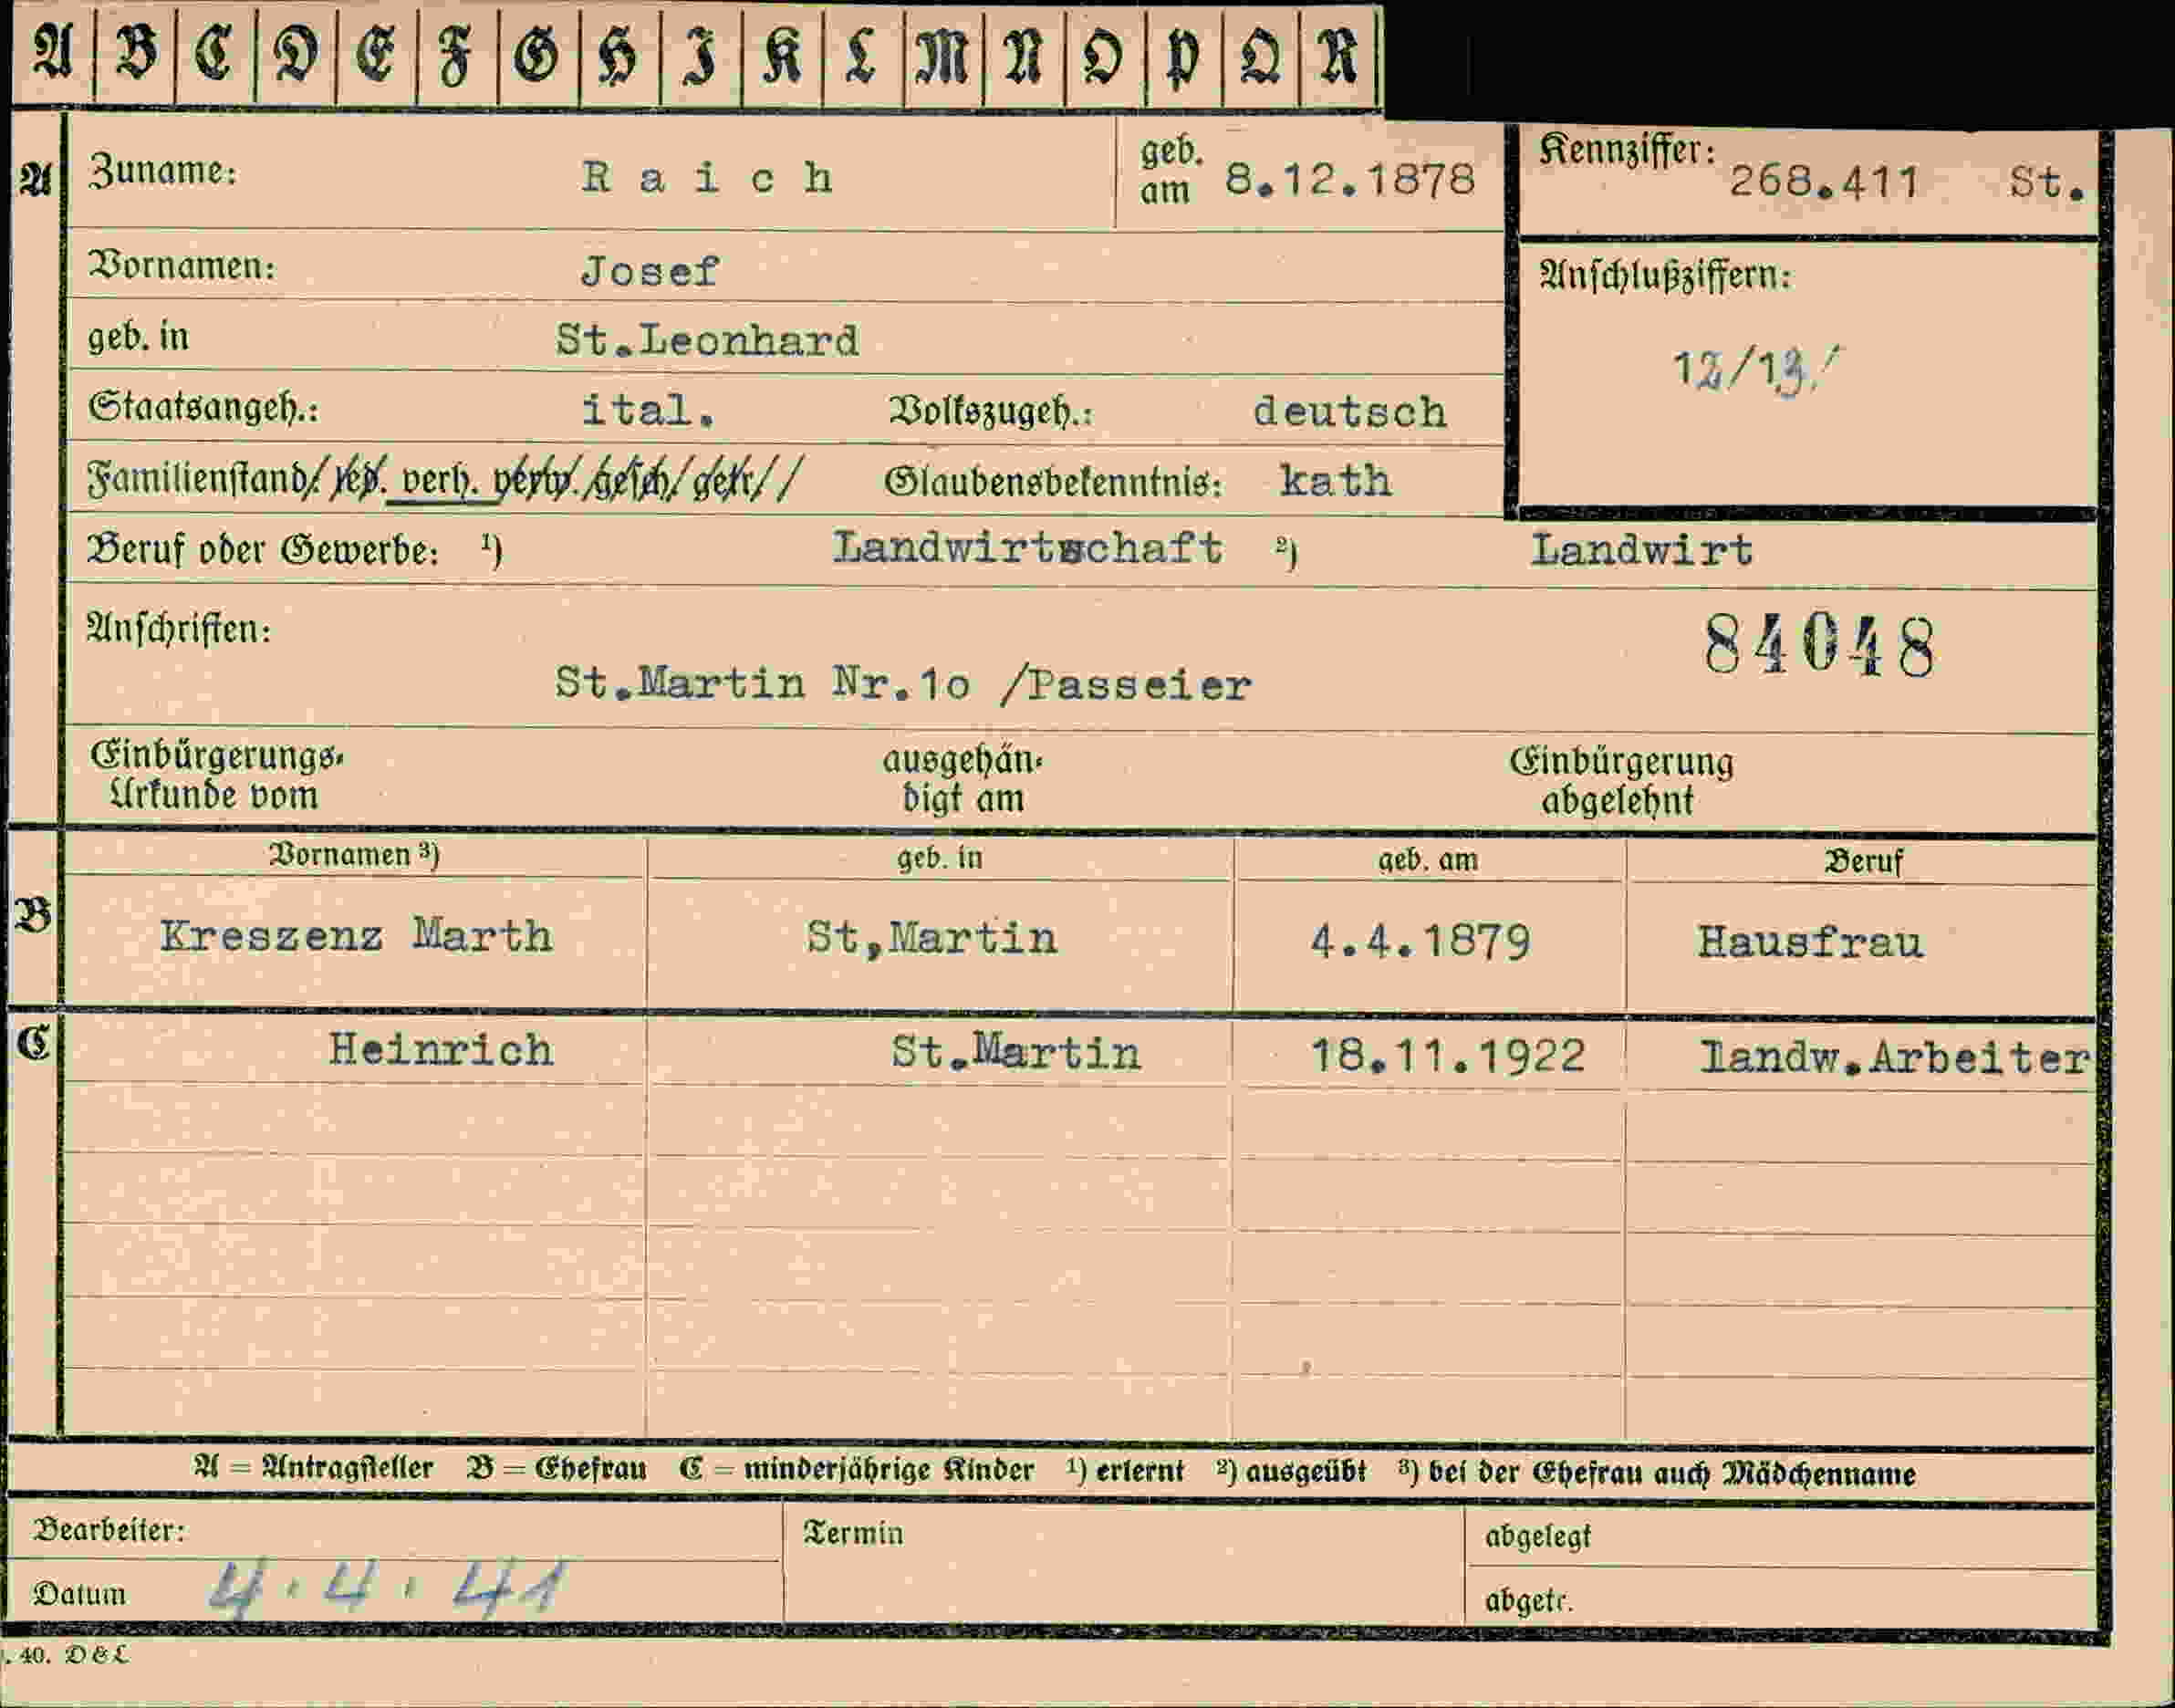 A B C D E F G H I K L M N O P Q R
A Zuname: Raich geb. am 8.12.1878 Kennziffer: 268.411 St.
Vornamen: Josef Anschlußziffern:
geb. in St.Leonhard 12/13/
Staatsangeh.: ital. Volkszugeh.: deutsch
Familienstand: led. verh. verw. gesch. getr. Glaubensbekenntnis: kath
Beruf oder Gewerbe: ¹) Landwirtschaft ²) Landwirt
Anschriften: 84048
St.Martin Nr.1o /Passeier
Einbürgerungs- ausgehän- Einbürgerung
Urkunde vom digt am abgelehnt
Vornamen ³) geb. in geb. am Beruf
B Kreszenz Marth St,Martin 4.4.1879 Hausfrau
C Heinrich St.Martin 18.11.1922 landw.Arbeiter
A = Antragsteller B = Ehefrau C = minderjährige Kinder ¹) erlernt ²) ausgeübt ³) bei der Ehefrau auch Mädchenname
Bearbeiter: Termin abgelegt
Datum 4.4.41 abgetr.
. 40. D & L